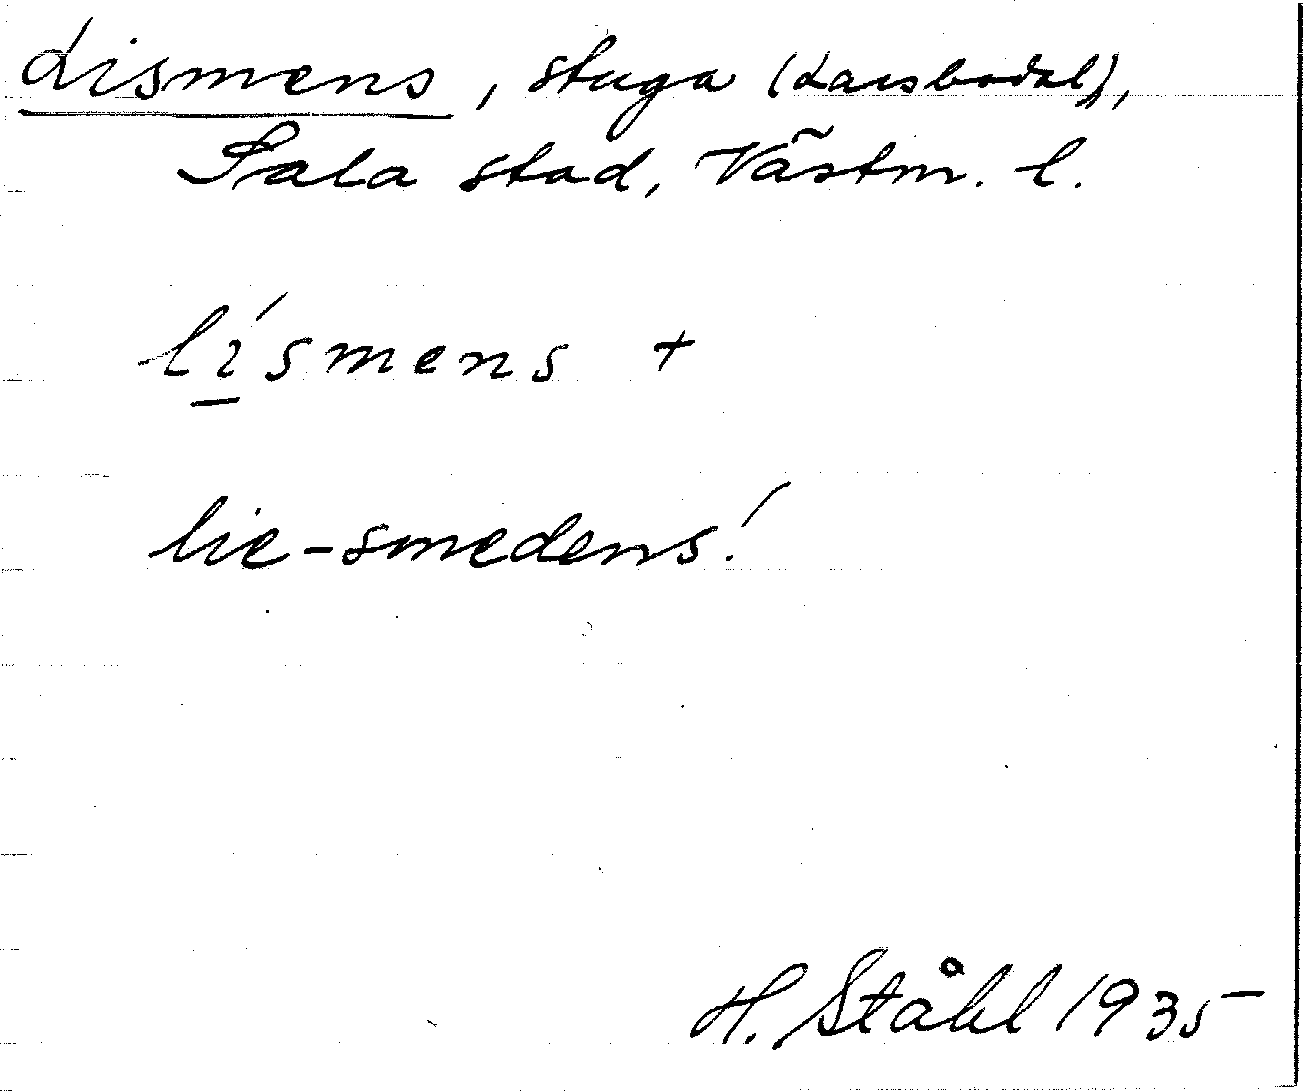 Lismens, stuga (Larsbodal),
Sala stad, Västm. l.
lísmens +
lie-smedens!
H. Ståhl 1935